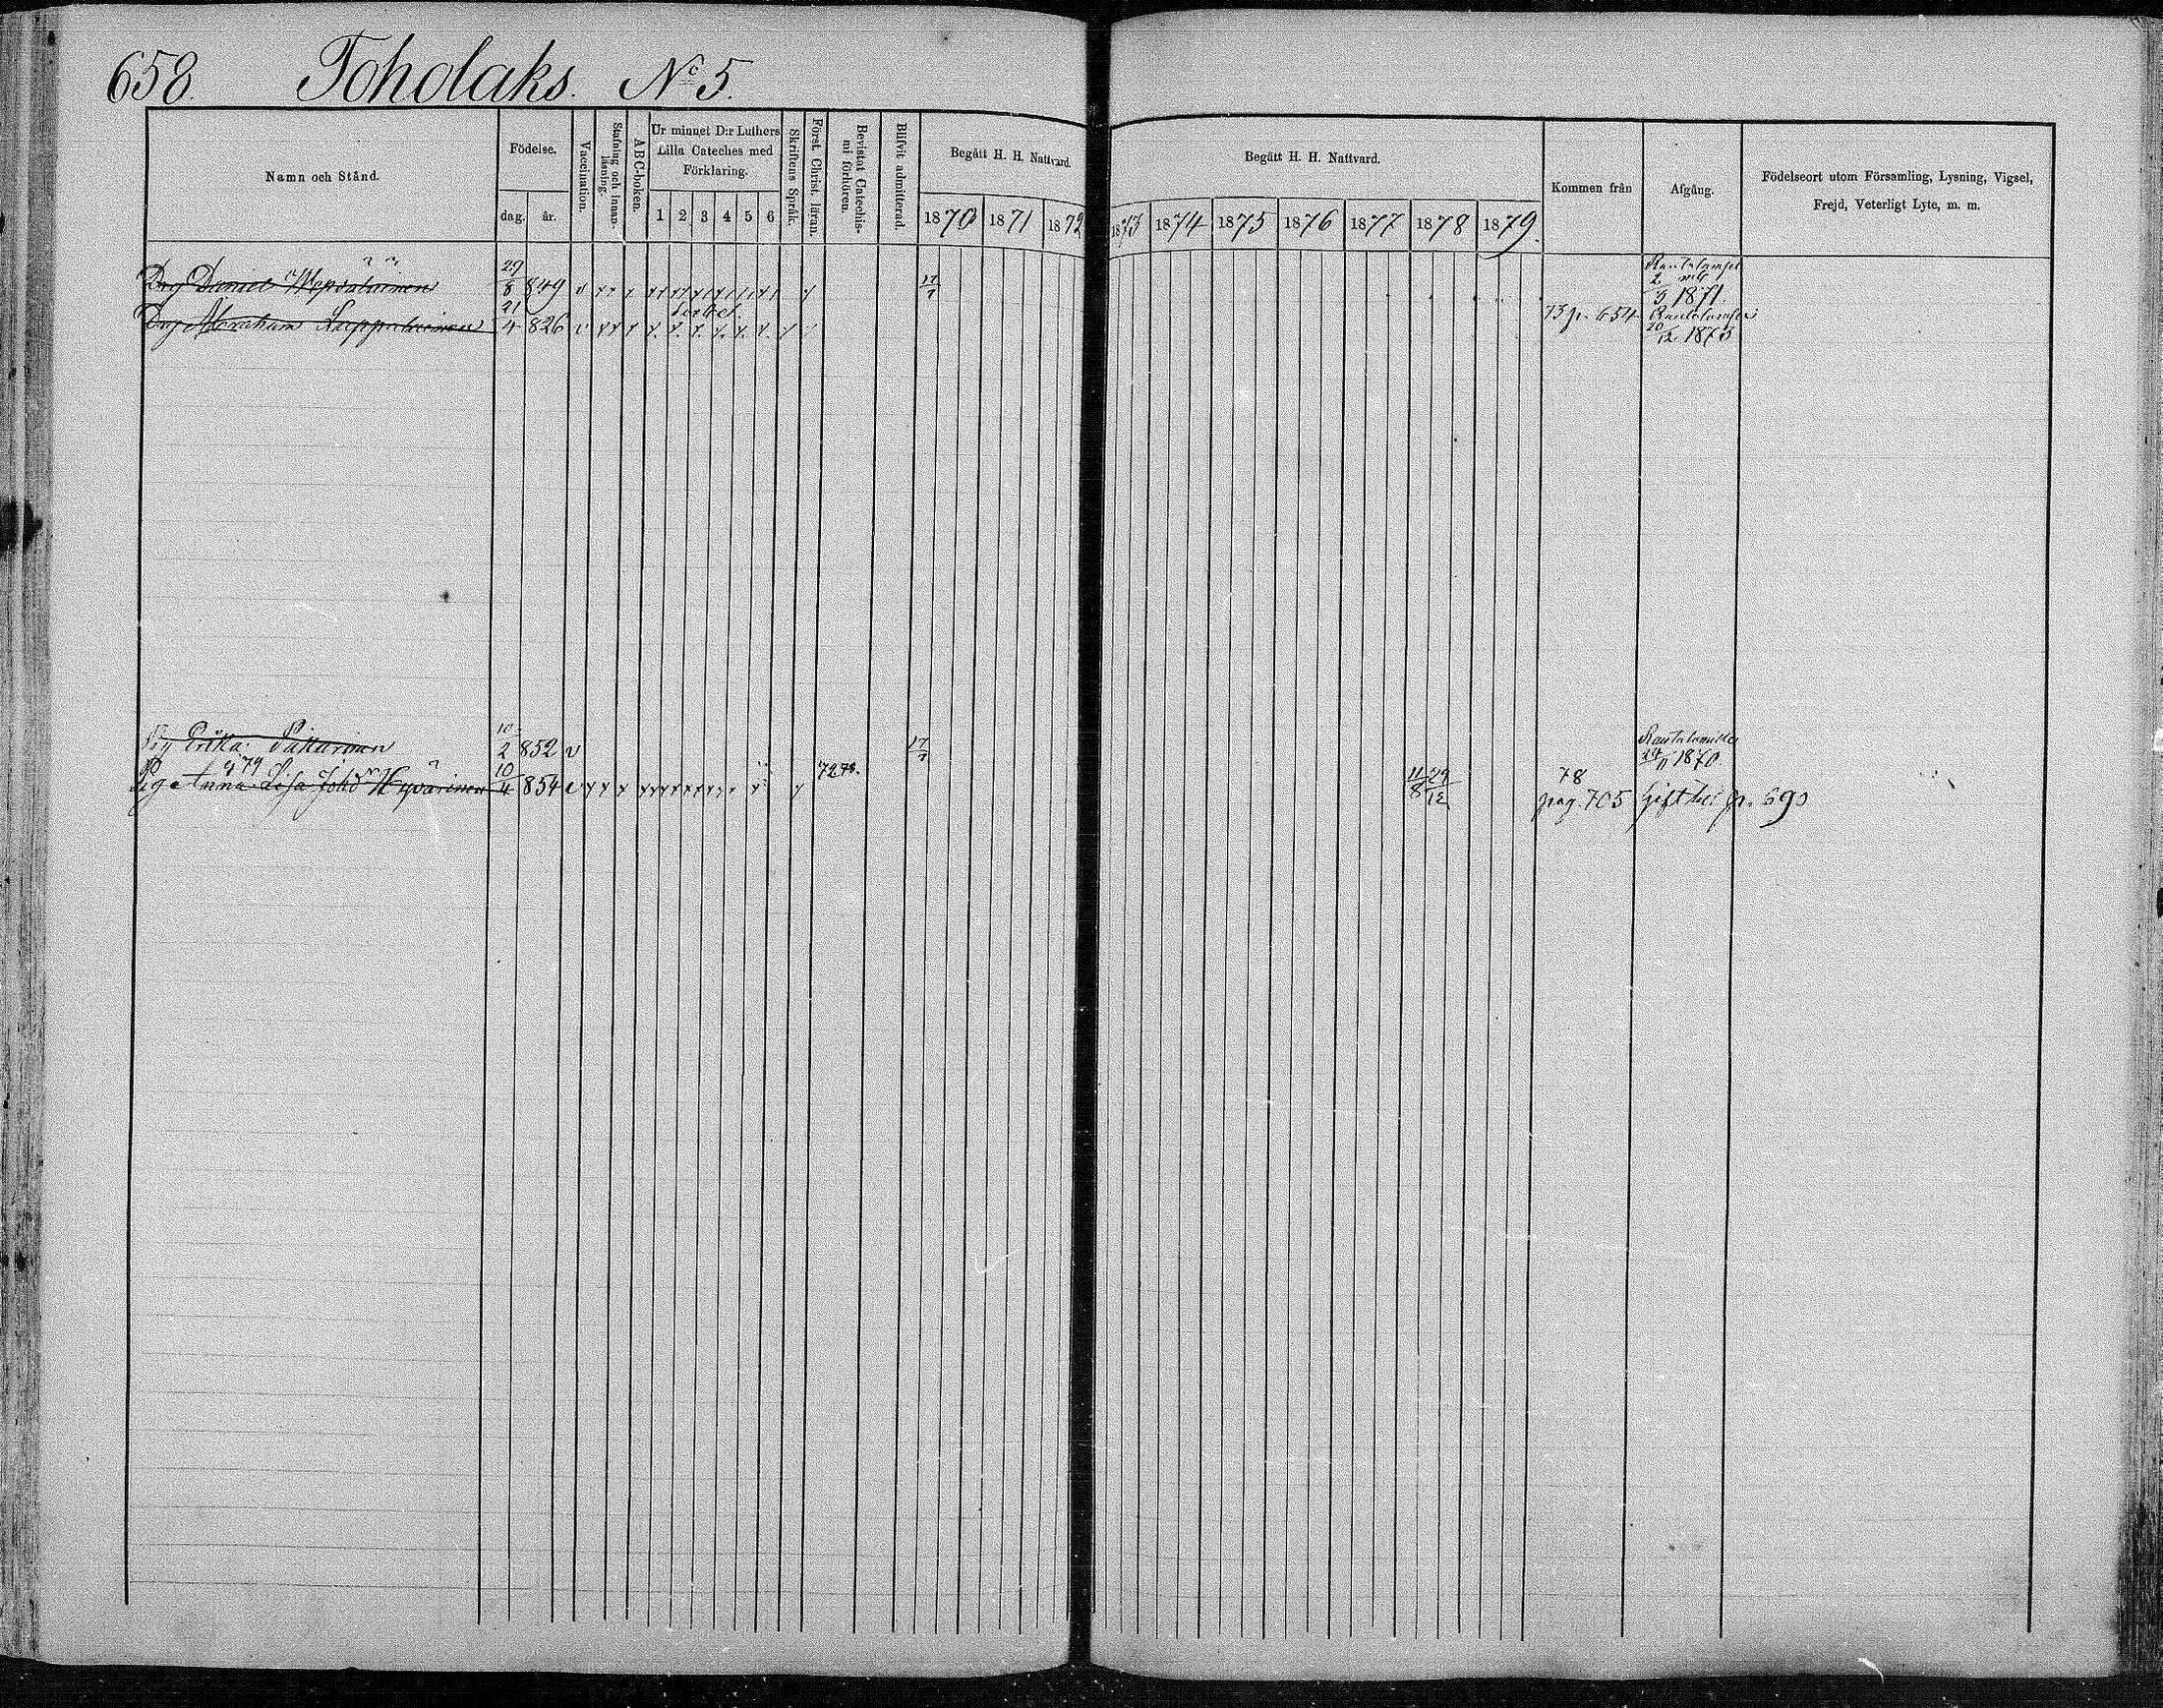 658. Toholaks. No 5.
Namn och Stånd.
Födelse.
dag. år.
Vaccination.
Stafning och innanläsning.
ABC-boken.
Ur minnet D:r Luthers Lilla Cateches med Förklaring.
1 2 3 4 5 6
Skriftens Språk.
Först. Christ. läran.
Bevistat Catechismi förhören.
Blifvit admitterad.
Begått H. H. Nattvard.
1870 1871 1872
Begått H. H. Nattvard.
1873 1874 1875 1876 1877 1878 1879.
Kommen från
Afgång.
Födelseort utom Församling, Lysning, Vigsel,
Frejd, Veterligt Lyte, m. m.
Drg Daniel 29/8 849 v 17/7 2/3 1871.
Drg Abraham 21/4 826 v 73 p. 654 20/12 1873
Pig Erika Pakarinen 10/2 852 v 17/7 1870
Pig Anna Lisa Johd:r Hyvärinen 10/4 854 v 72 11/8 29/12 78 pag. 705 Gift här p. 690